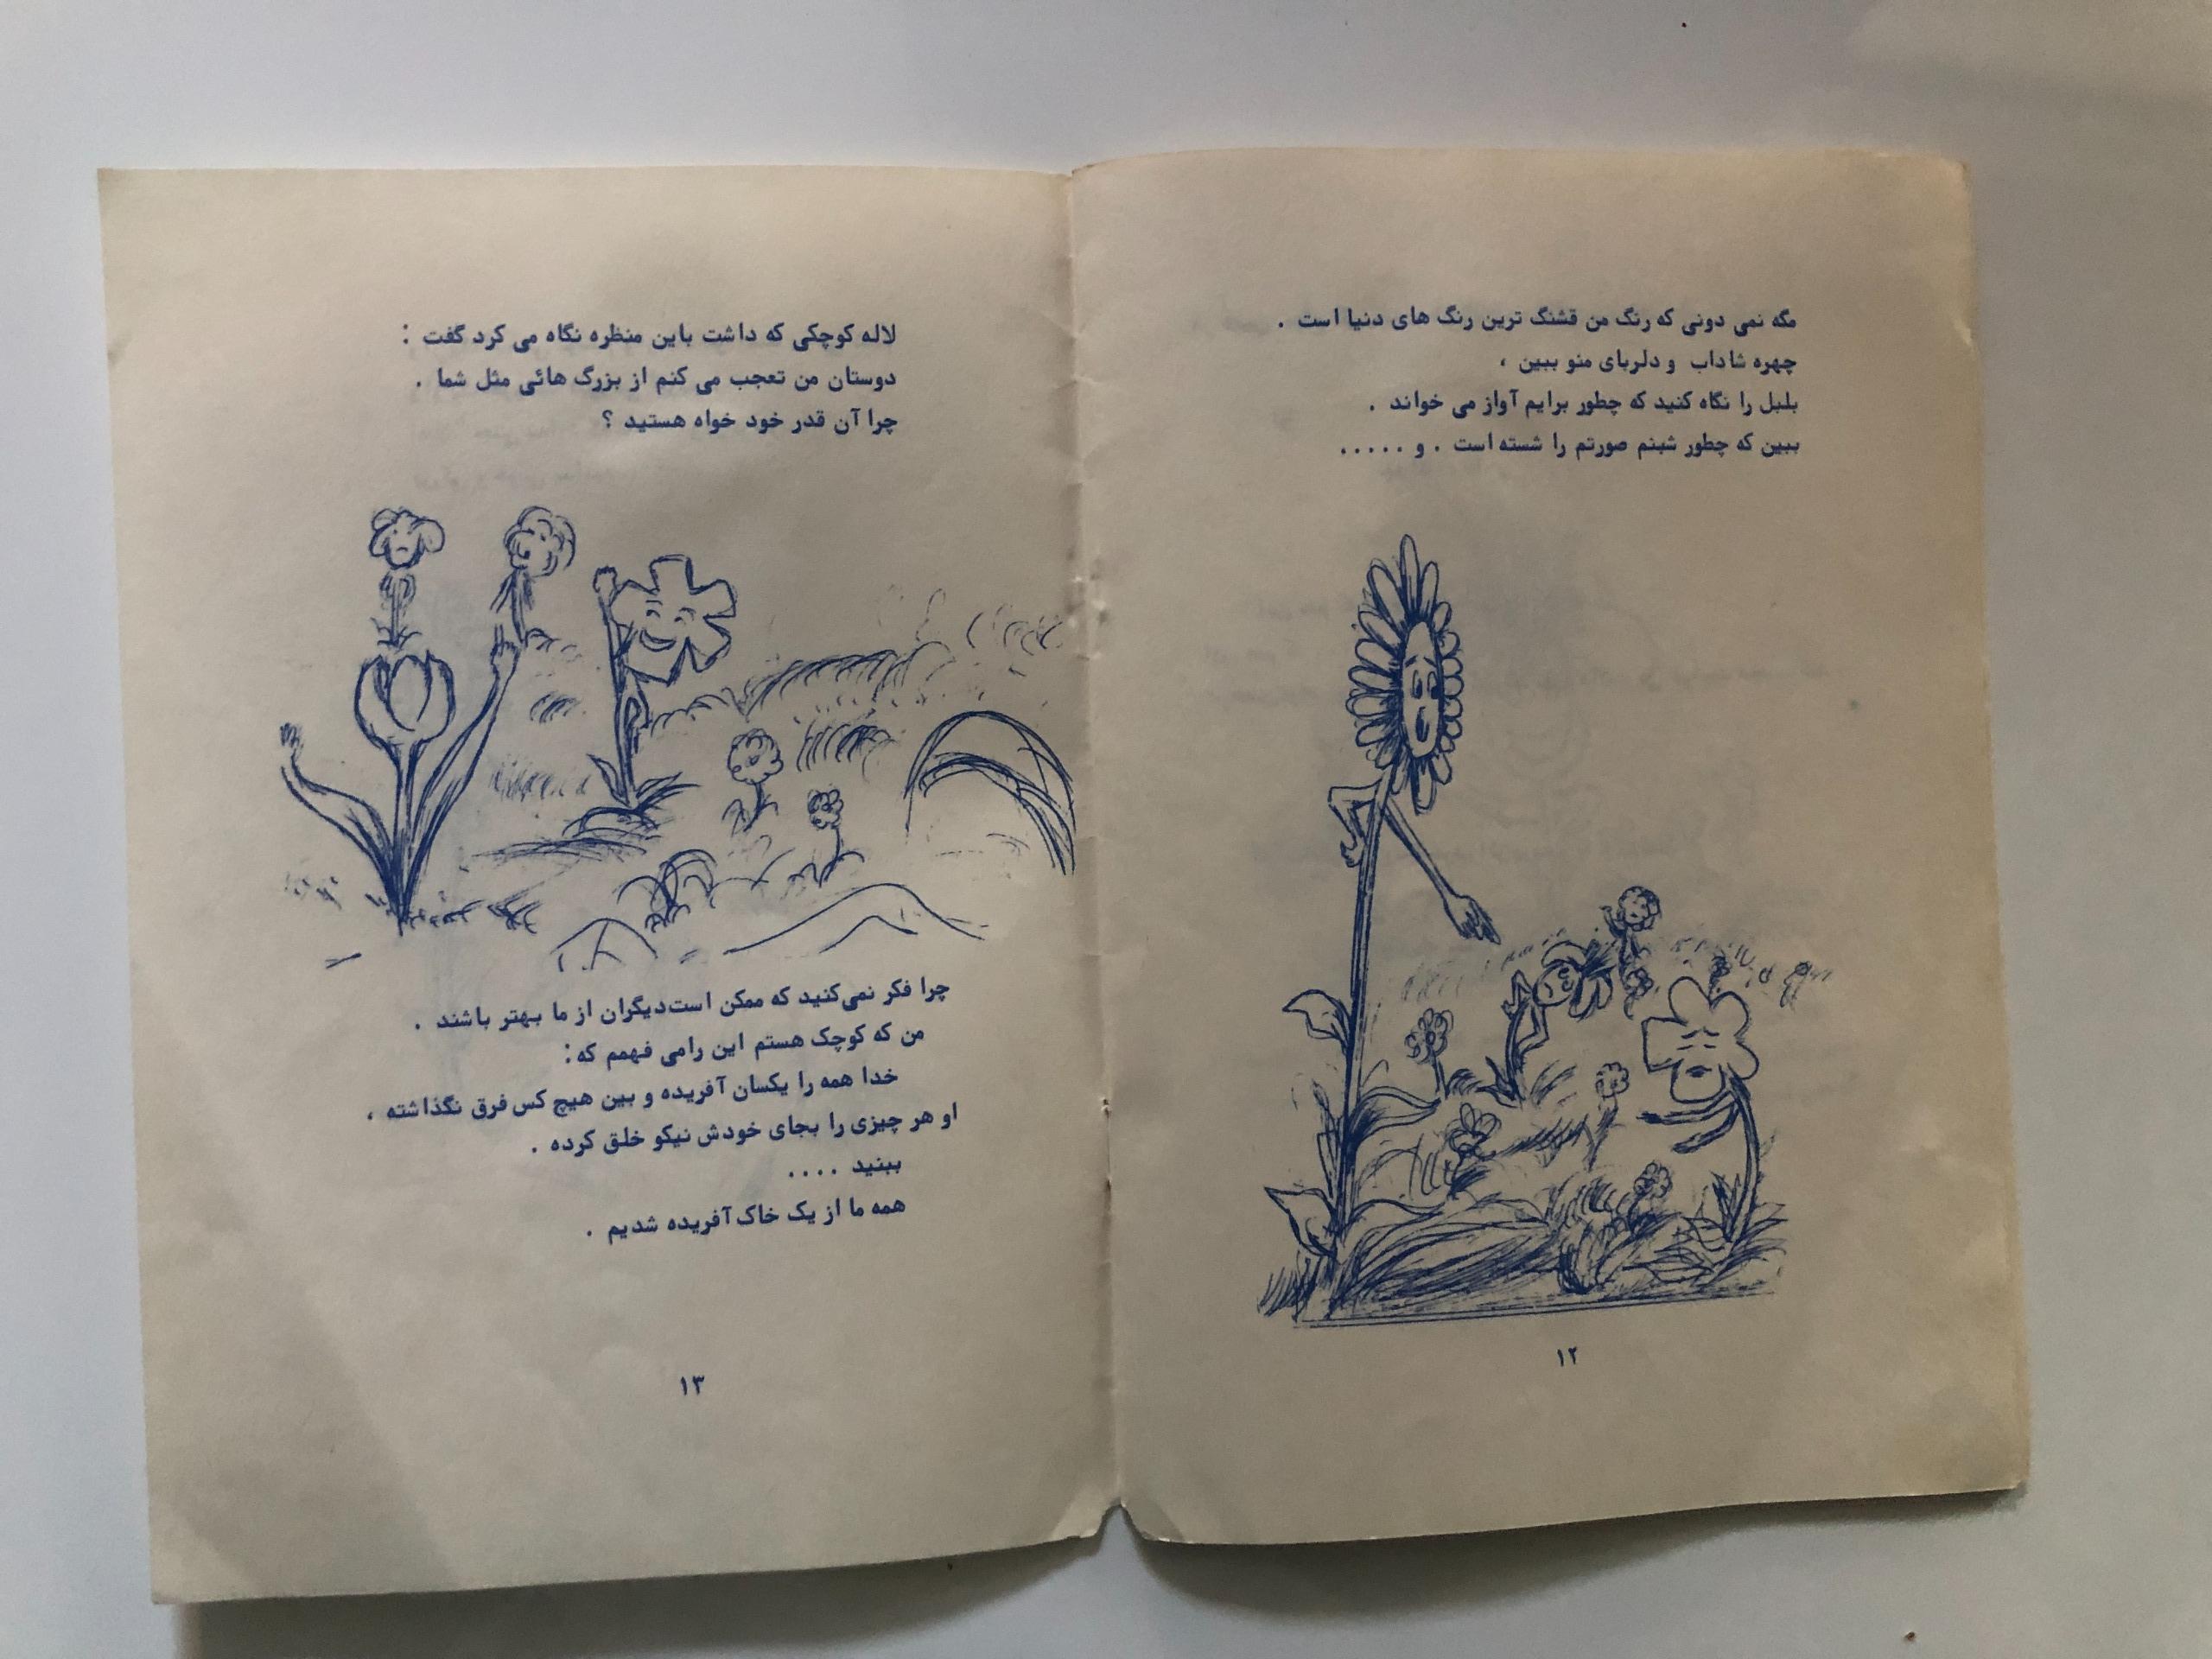 مگه نمی دونی که رنگ من قشنگ ترین رنگ های دنیا است .
چهره شاداب و دلربای منو ببین ،
بلبل را نگاه کنید که چطور برایم آواز می خواند .
ببین که چطور شبنم صورتم را شسته است . و .....
۱۲
لاله کوچکی که داشت باین منظره نگاه می کرد گفت :
دوستان من تعجب می کنم از بزرگ هائی مثل شما .
چرا آن قدر خود خواه هستید ؟
چرا فکر نمی‌کنید که ممکن است دیگران از ما بهتر باشند .
من که کوچک هستم این رامی فهمم که :
خدا همه را یکسان آفریده و بین هیچ کس فرق نگذاشته ،
او هر چیزی را بجای خودش نیکو خلق کرده .
ببنید ....
همه ما از یک خاک آفریده شدیم .
۱۳